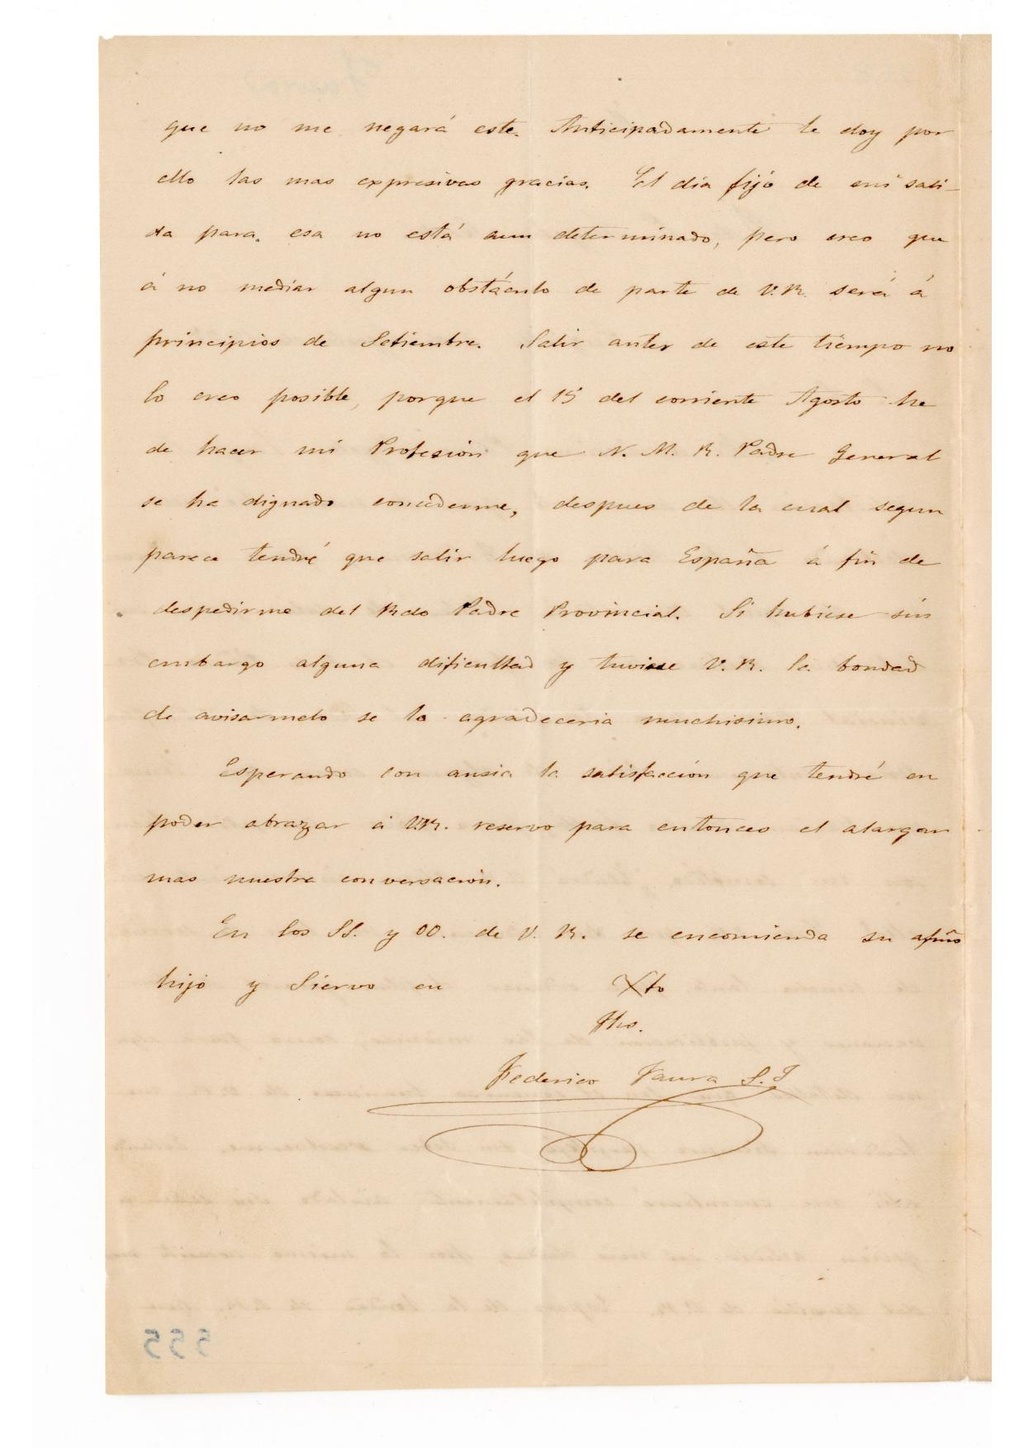 que no me negará este. Anticipadamente le doy por
ello las mas expresivas gracias. El dia fijó de mi sali-
da para esa no está aun determinado, pero creo que
á no mediar algun obstáculo de parte de V.R. será á
principios de Setiembre. Salir antes de este tiempo no
lo creo posible, porque el 15 del corriente Agosto he
de hacer mi Profesion que N. M. R. Padre General
se ha dignado concederme, despues de la cual segun
parece tendré que salir luego para España á fin de
despedirme del Rdo Padre Provincial. Si hubiese sin
embargo alguna dificultad y tuviese V.R. la bondad
de avisarmelo se lo agradeceria muchisimo.
Esperando con ansia la satisfacción que tendré en
poder abrazar á V.R. reservo para entonces el alargar
mas nuestra conversación.
En los SS. y OO. de V. R. se encomienda su afmo
hijo y Siervo en Xto
Jhs.
Federico Faura S.J